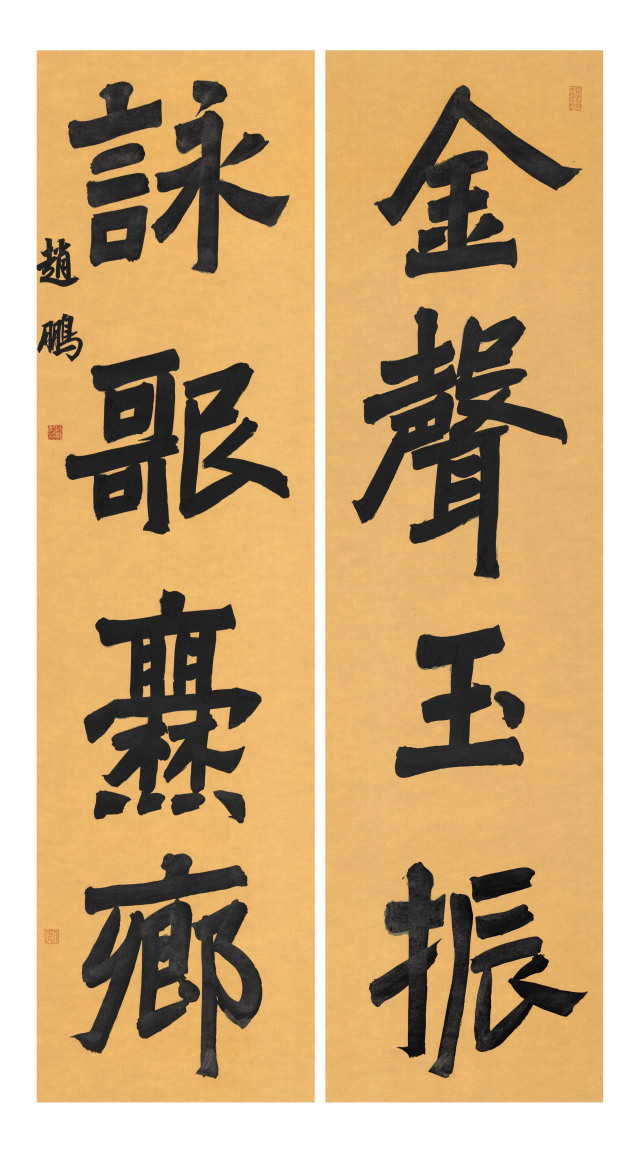 金聲玉振
詠歌爨鄉
趙鵬